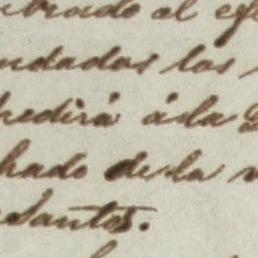 brado al efe
ndados los
pedirá á la
hado de la
Santos.